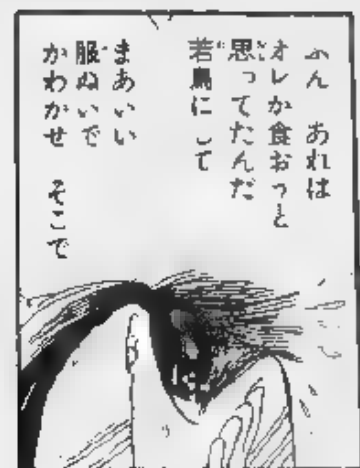 ふん　あれは
オレが食おっと
思ってたんだ
若鳥にして
まあいい
服ぬいで
かわかせ　そこで